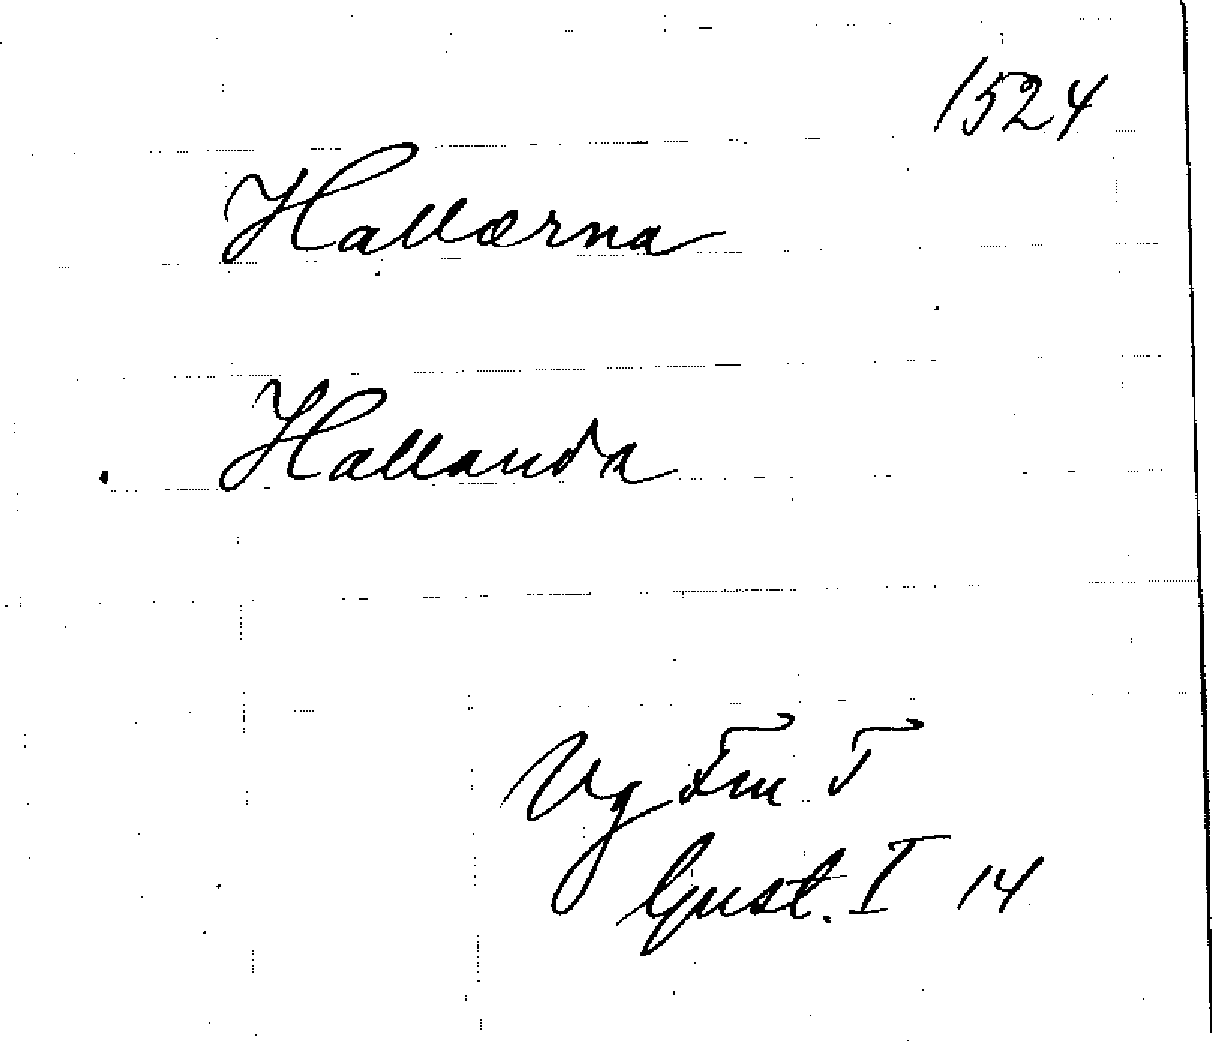 1524
Hallærna
Hallanda
Vg Fm T
Gust. I 14